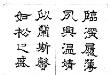 臨深履薄
夙興溫凊
似蘭斯馨
如松之盛